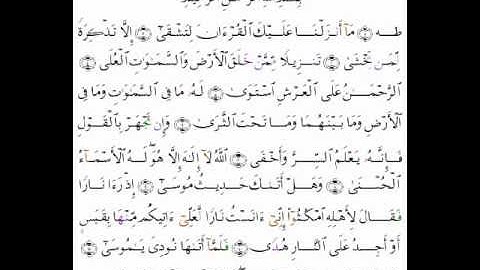 طه ۝ مَآ أَنزَلْنَا عَلَيْكَ ٱلْقُرْءَانَ لِتَشْقَىٰٓ ۝ إِلَّا تَذْكِرَةً
لِّمَن يَخْشَىٰ ۝ تَنزِيلًا مِّمَّنْ خَلَقَ ٱلْأَرْضَ وَٱلسَّمَٰوَٰتِ ٱلْعُلَى ۝
ٱلرَّحْمَٰنُ عَلَى ٱلْعَرْشِ ٱسْتَوَىٰ ۝ لَهُۥ مَا فِى ٱلسَّمَٰوَٰتِ وَمَا فِى
ٱلْأَرْضِ وَمَا بَيْنَهُمَا وَمَا تَحْتَ ٱلثَّرَىٰ ۝ وَإِن تَجْهَرْ بِٱلْقَوْلِ
فَإِنَّهُۥ يَعْلَمُ ٱلسِّرَّ وَأَخْفَى ۝ ٱللَّهُ لَآ إِلَٰهَ إِلَّا هُوَ ۖ لَهُ ٱلْأَسْمَآءُ
ٱلْحُسْنَىٰ ۝ وَهَلْ أَتَىٰكَ حَدِيثُ مُوسَىٰٓ ۝ إِذْ رَءَا نَارًا
فَقَالَ لِأَهْلِهِ ٱمْكُثُوٓا۟ إِنِّىٓ ءَانَسْتُ نَارًا لَّعَلِّىٓ ءَاتِيكُم مِّنْهَا بِقَبَسٍ
أَوْ أَجِدُ عَلَى ٱلنَّارِ هُدًى ۝ فَلَمَّآ أَتَىٰهَا نُودِىَ يَٰمُوسَىٰٓ ۝